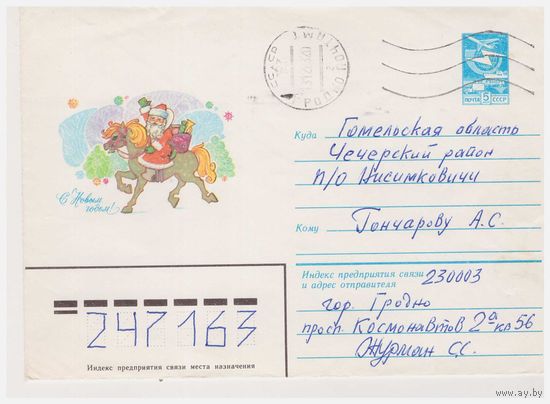 ПОЧТА 5 К СССР
Куда Гомельская область
Чечерский район
п/о Нисимковичи
Кому Гончарову А.С.
С Новым
годом!
Индекс предприятия связи
и адрес отправителя
230003
гор. Гродно
просп. Космонавтов 2а кв 56
Журман С.С.
247163
Индекс предприятия связи места назначения
www.ay.by